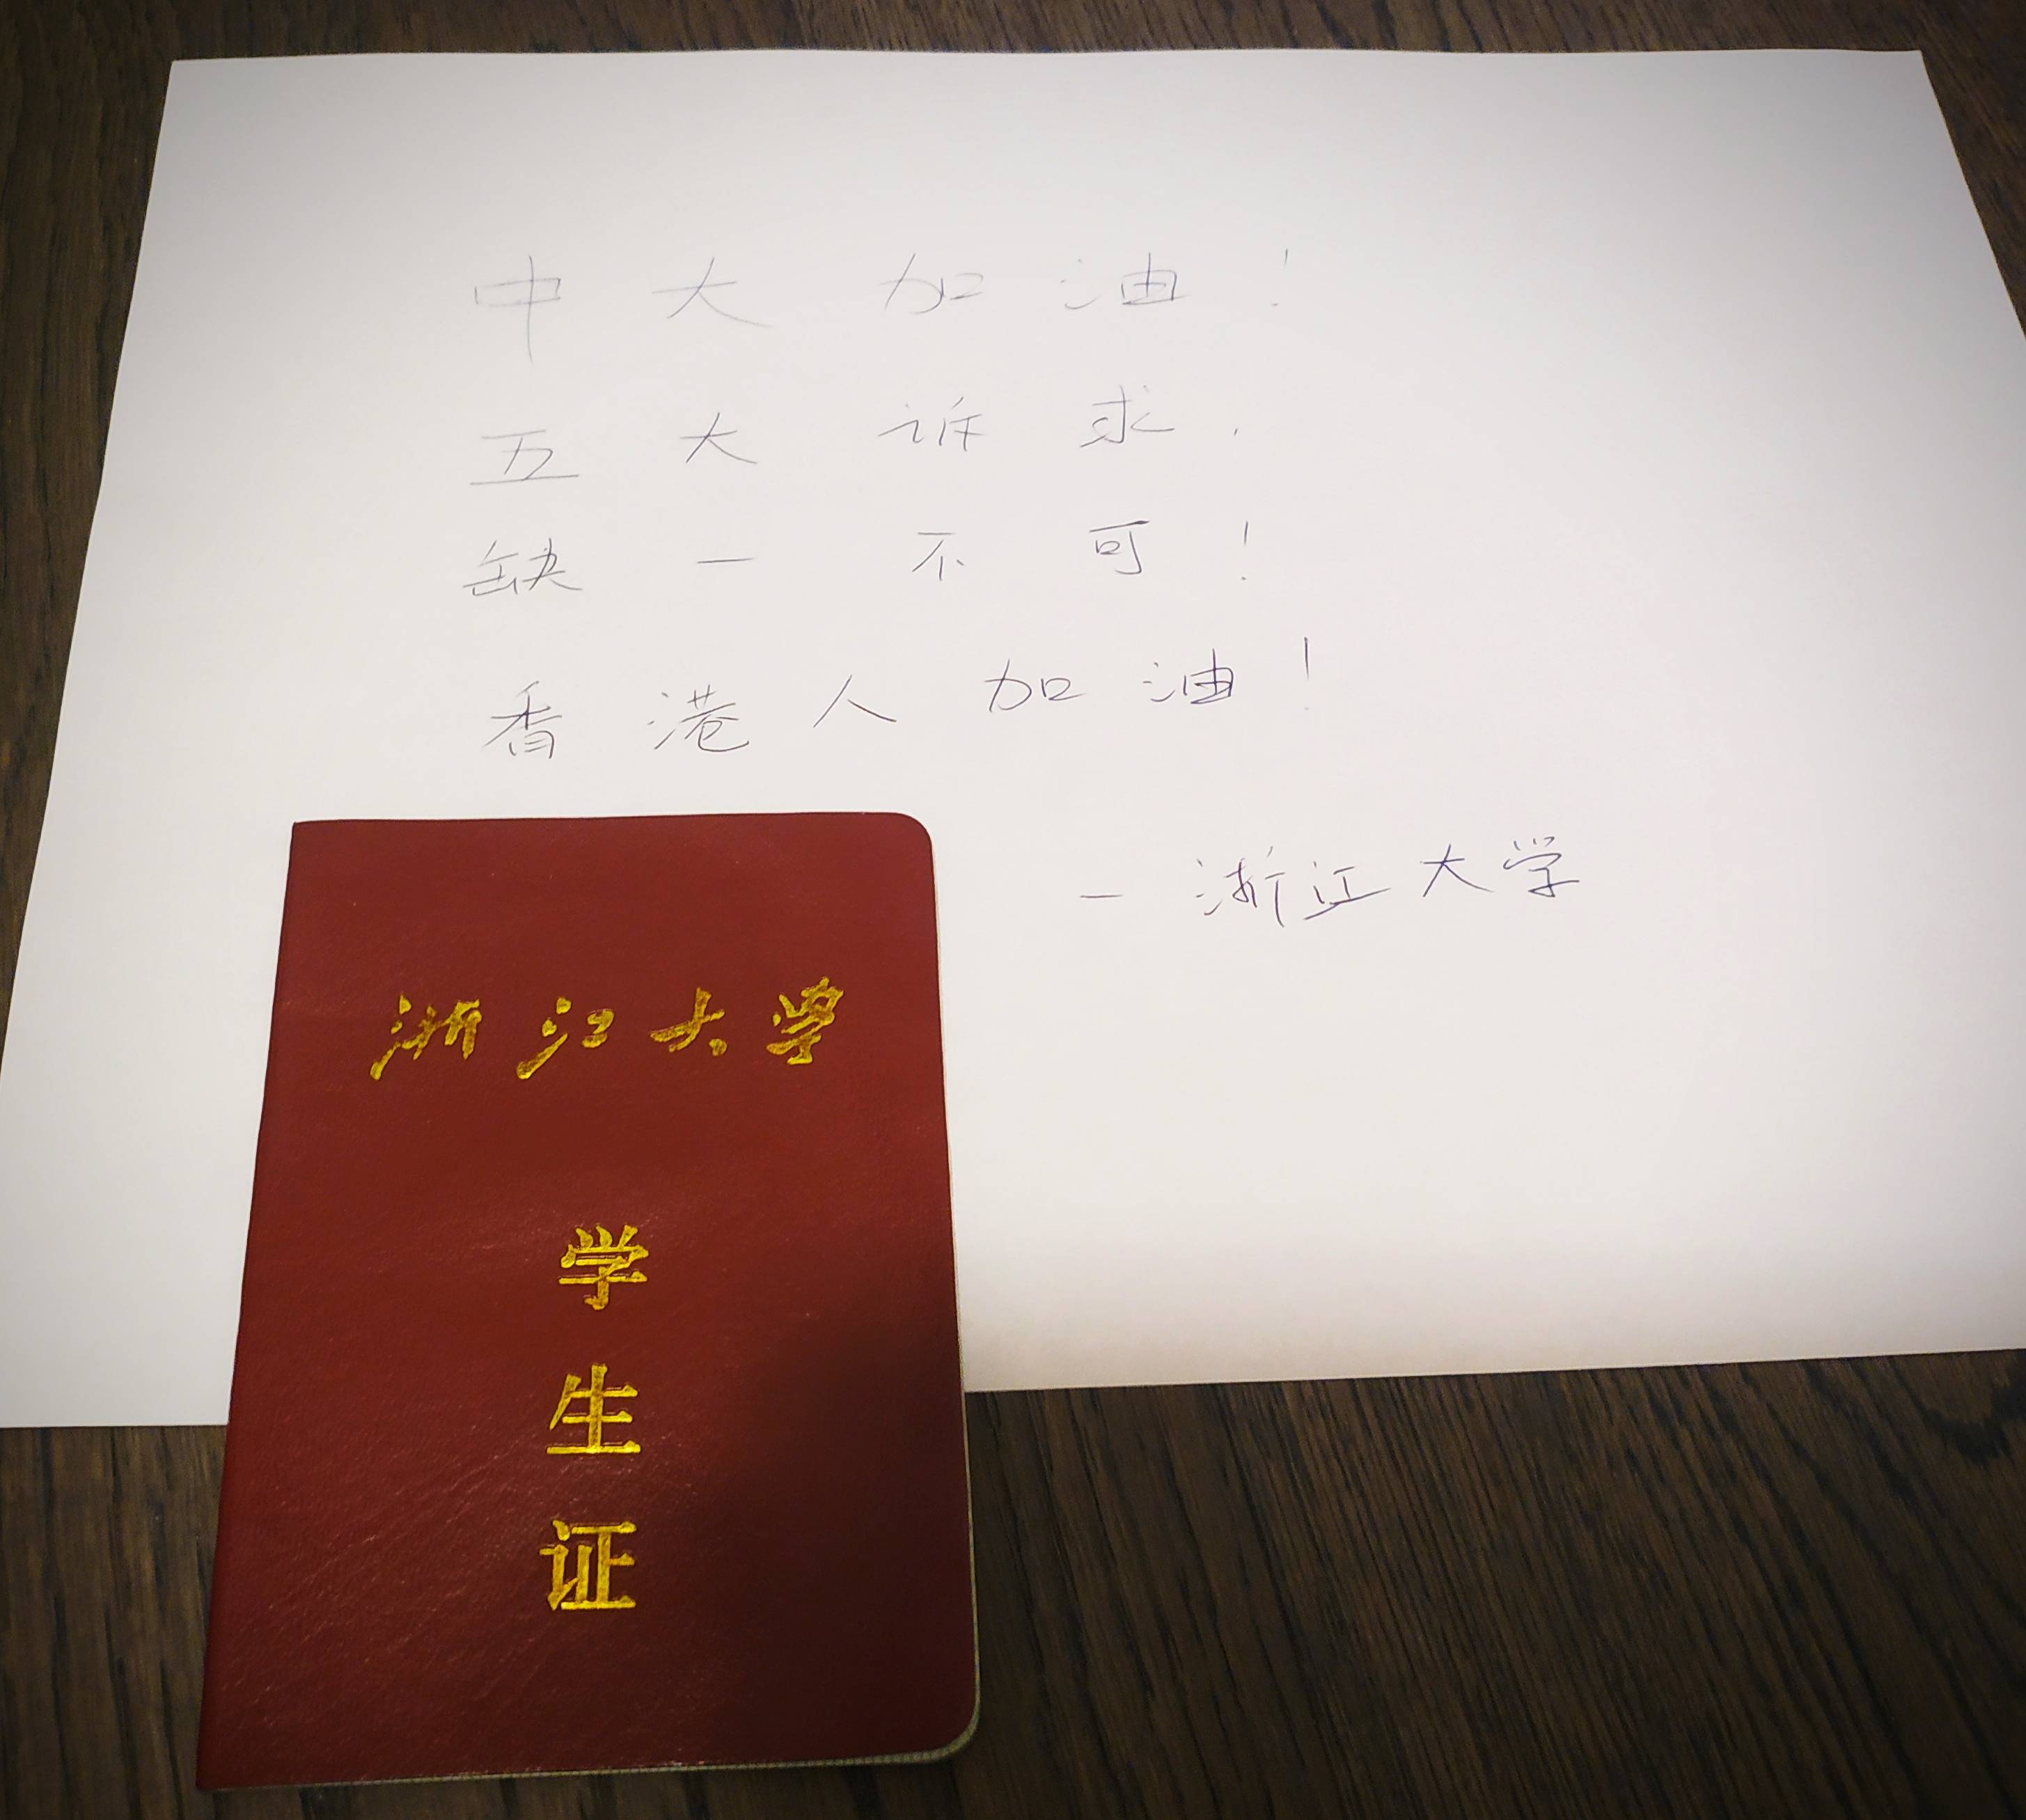 中大加油！
五大诉求，
缺一不可！
香港人加油！
— 浙江大学
浙江大学
学
生
证